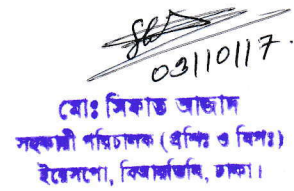 03/10/17.
মোঃ সিফাত আজাদ
সহকারী পরিচালক (প্রশিঃ ও বিপঃ)
ইয়েসপো, বিআরডিবি, ঢাকা।